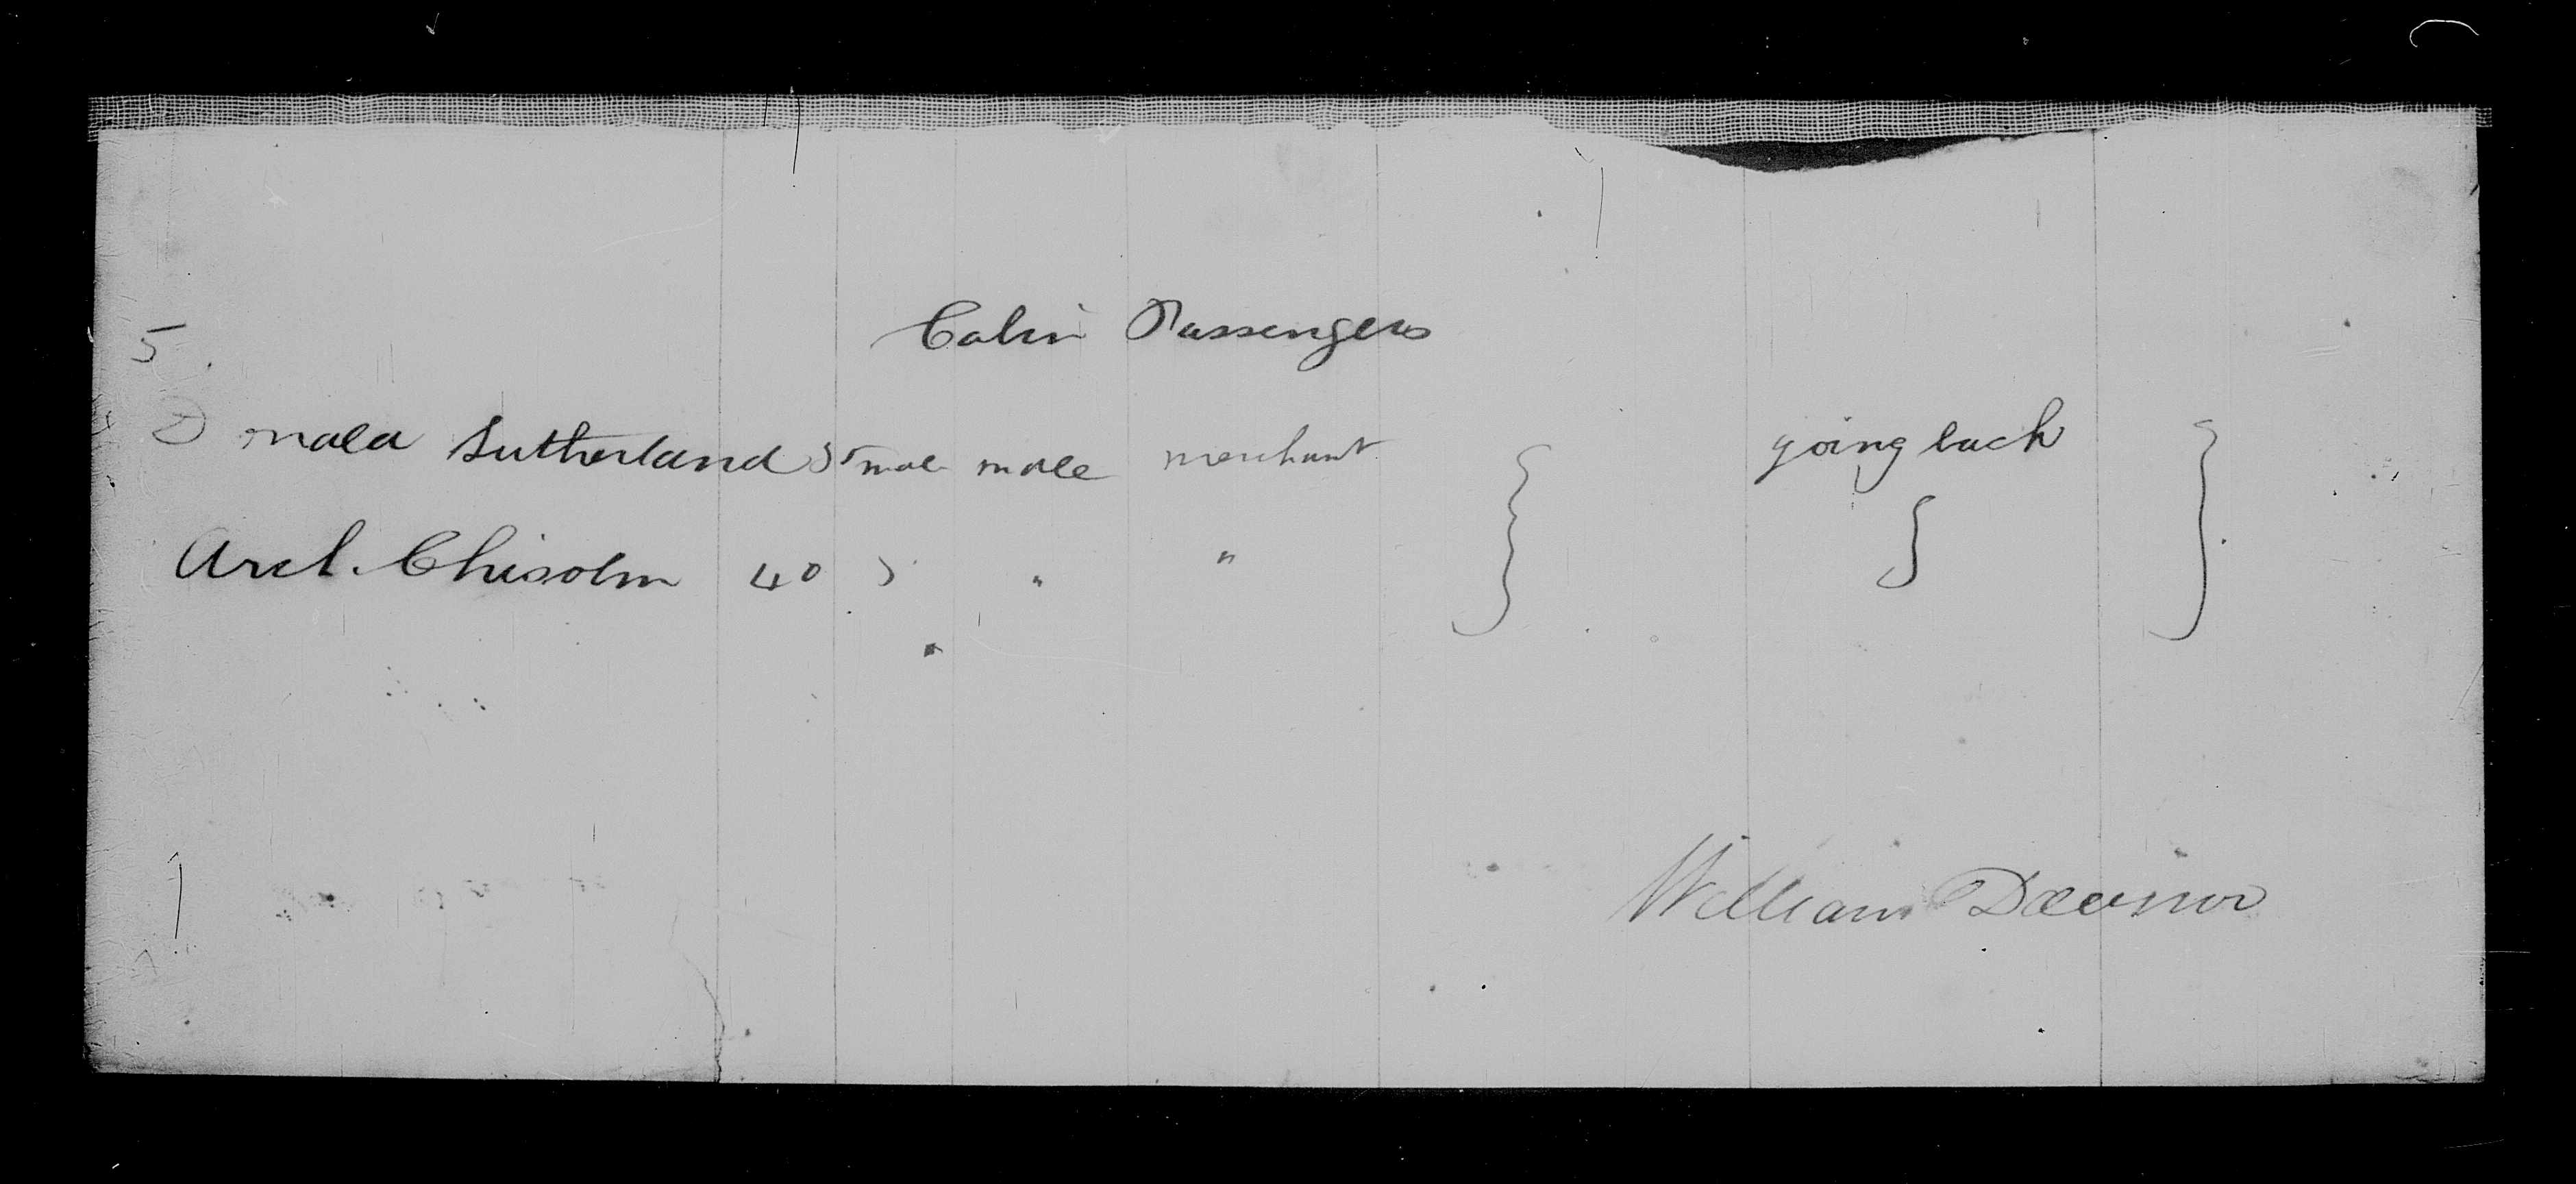 Cabin Passengers
5
Donald Sutherland male male merchant going back
Arch. Chisolm 40 " " "
William